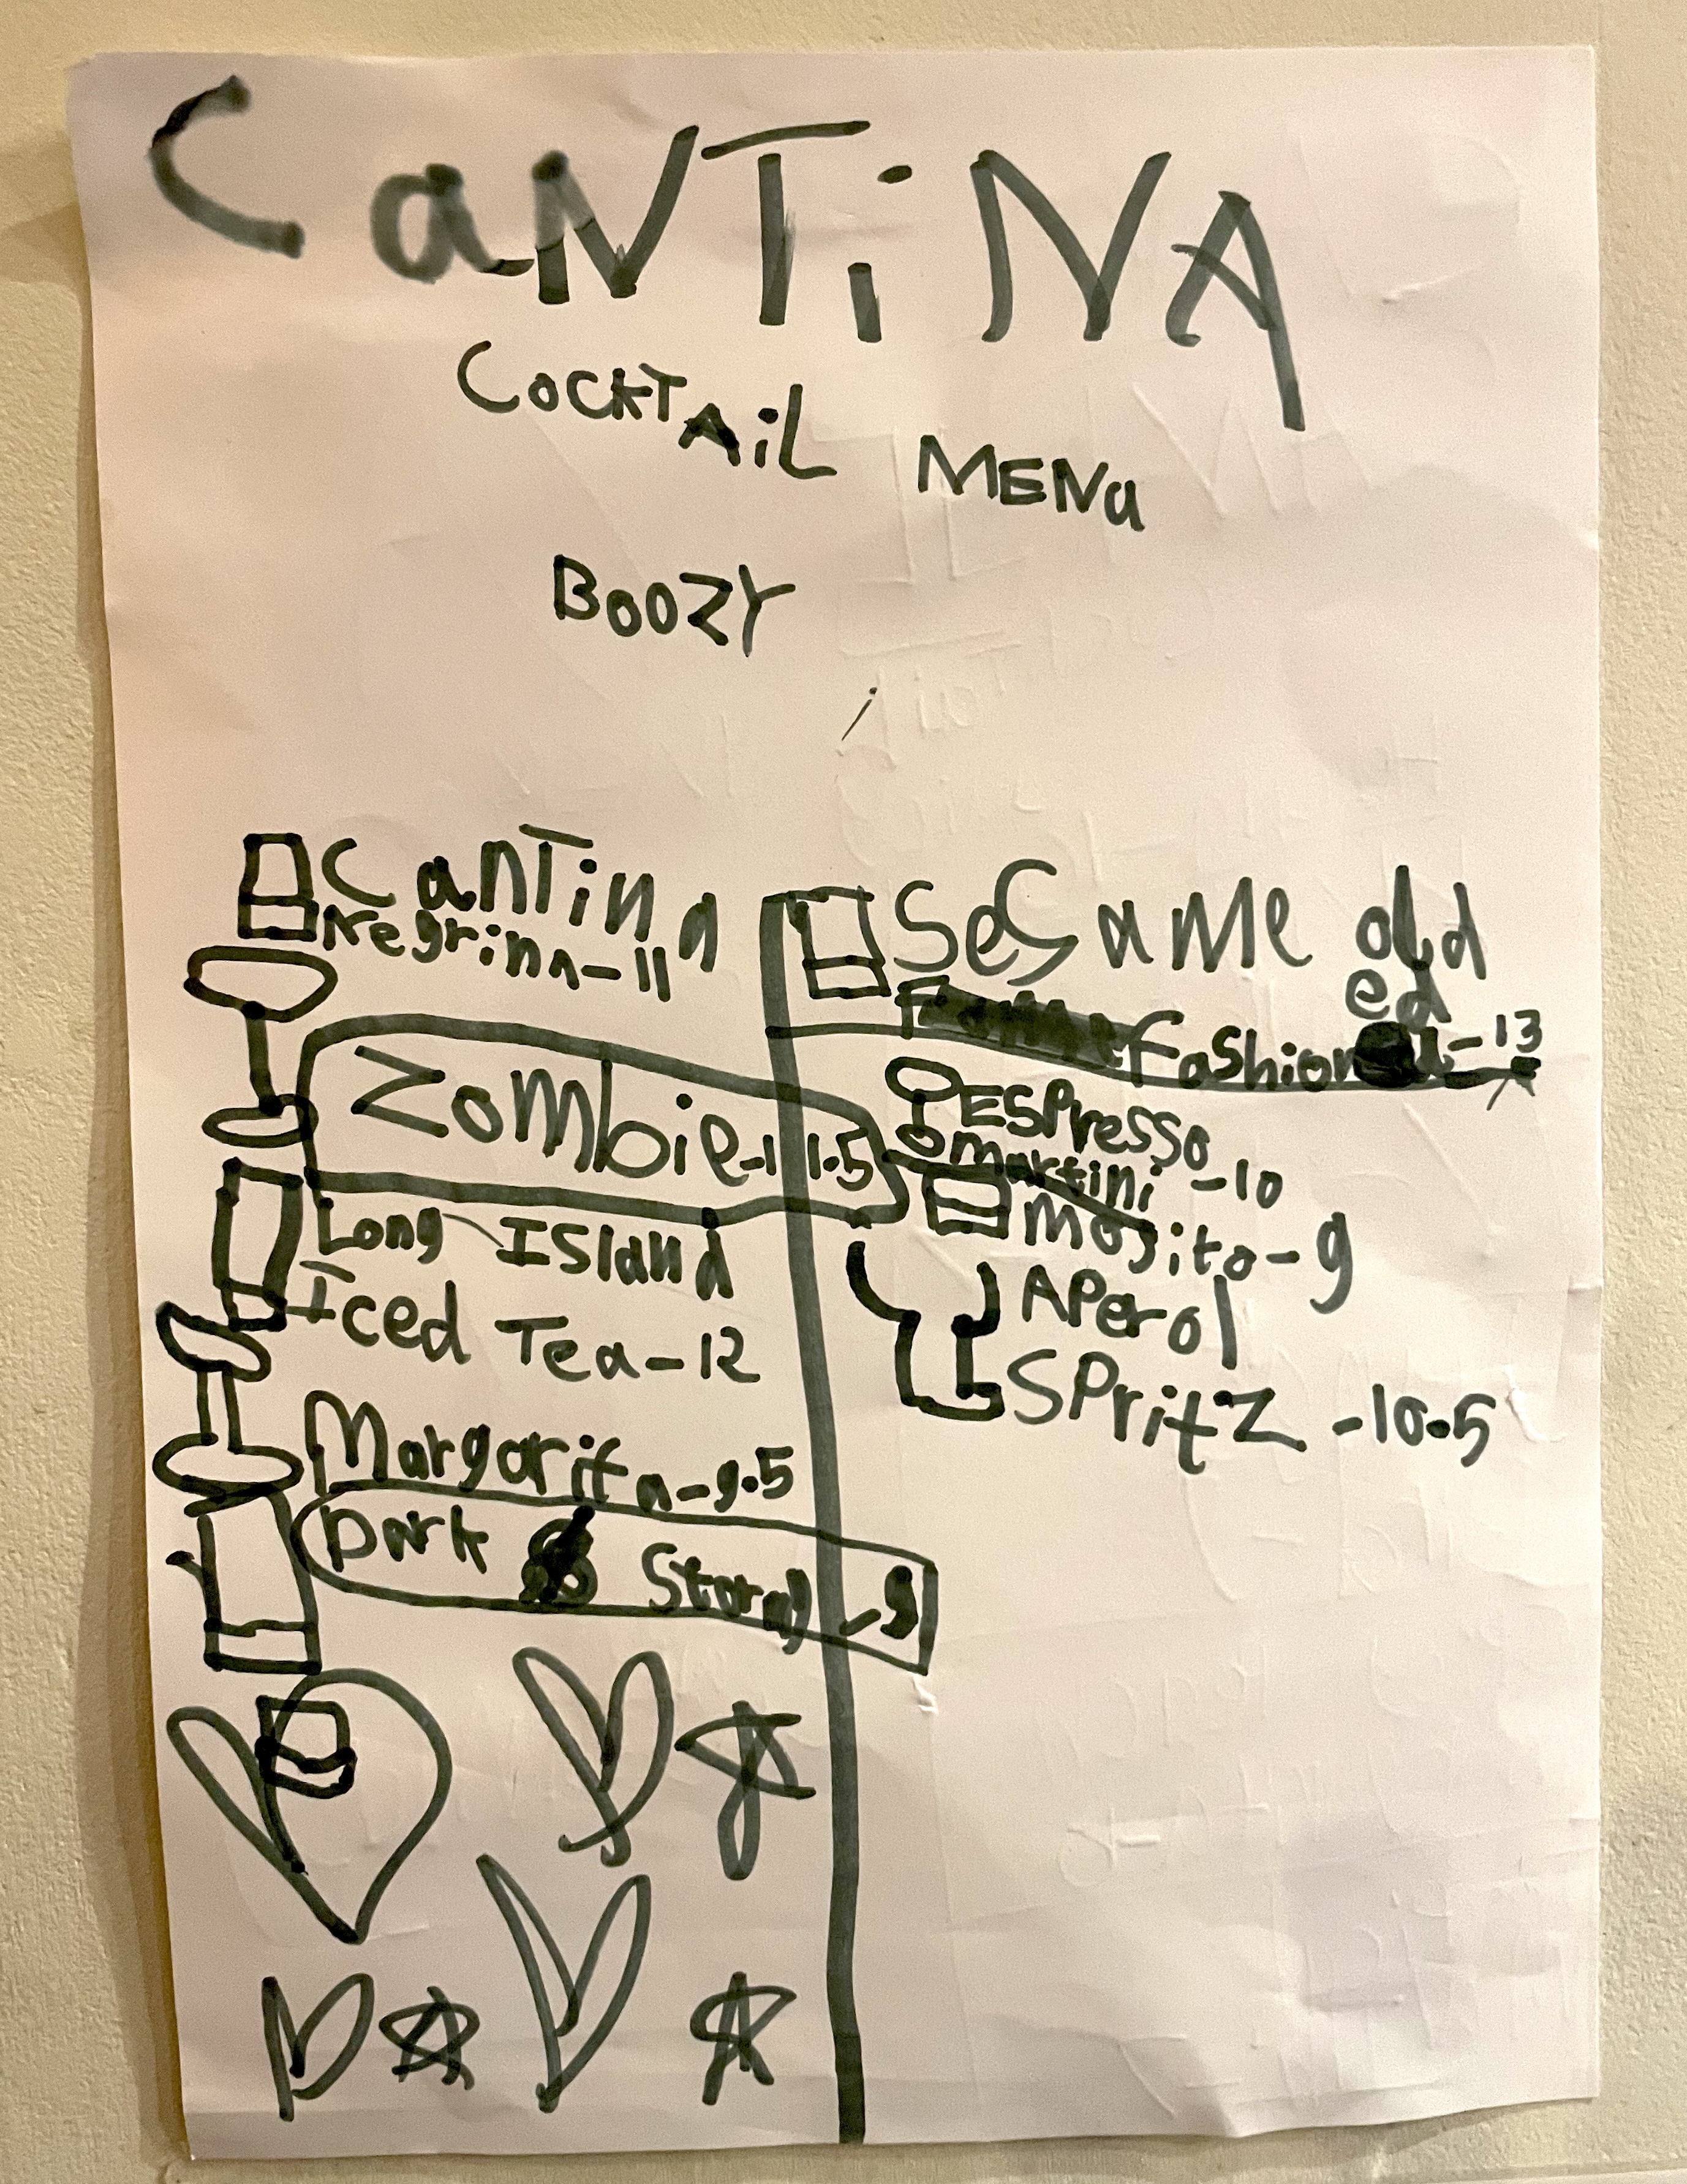 CaNTiNA
COCKTAiL MENu
BOOZY
CanTina
Negrina-11
Zombie-11.5
Long Island
Iced Tea-12
Margarita-9.5
Dark & Stormy -9
SeSame old
ed
Fashion -13
ESPresso
martini -10
Mojito-9
APerol
SPritZ -10.5